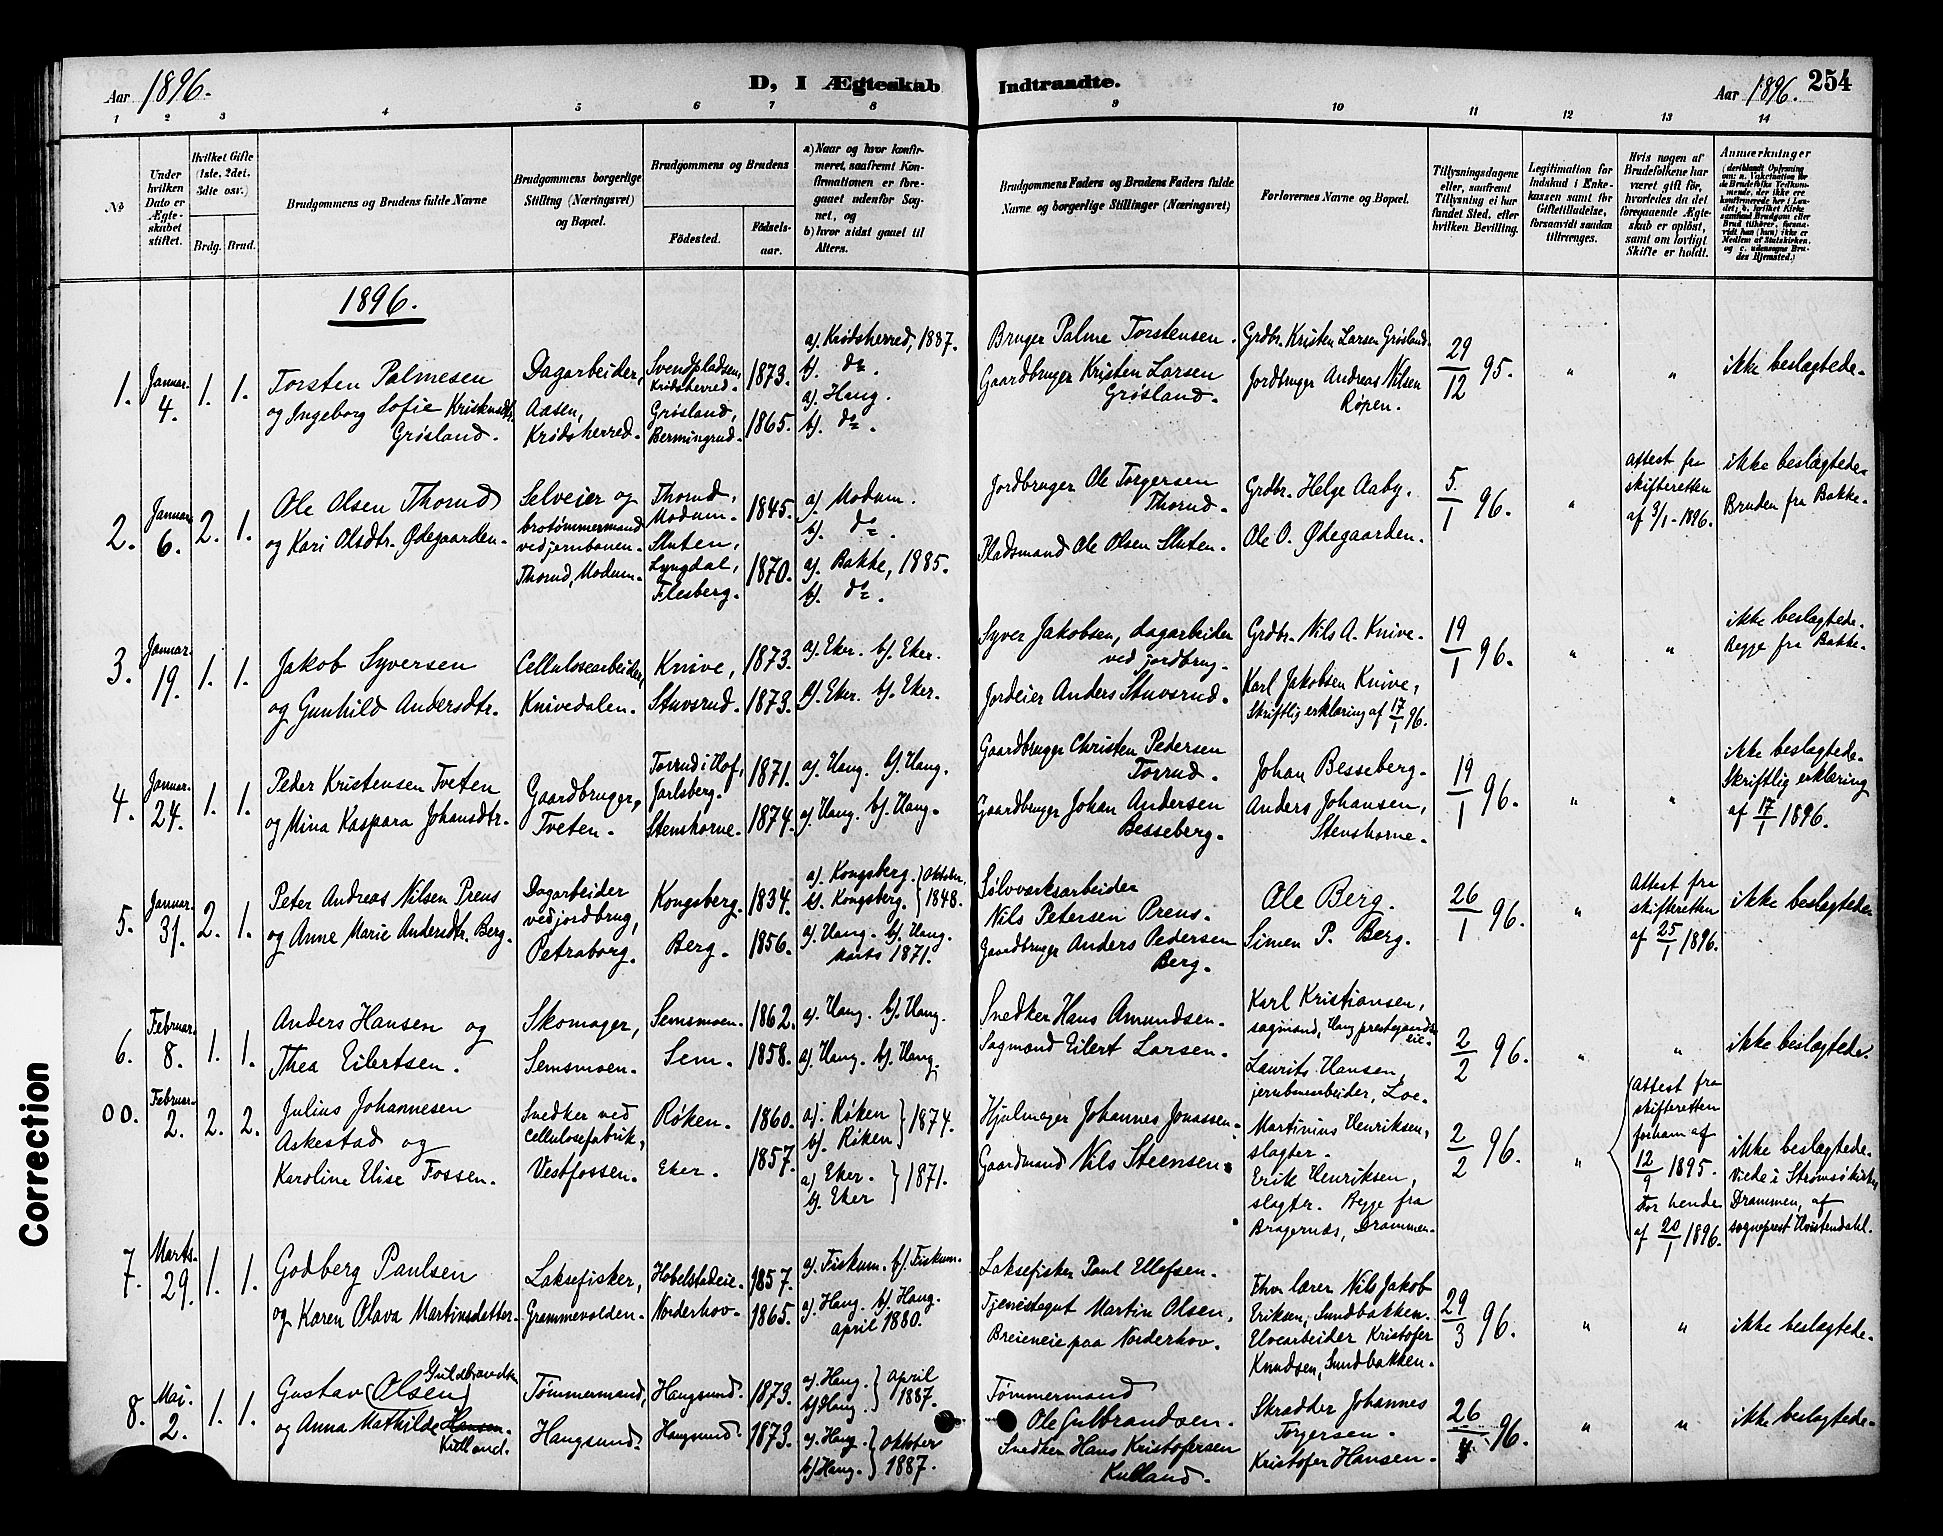 Aar 1896.
D, I Ægteskab Indtraadte.
Aar 1896. 254
1 2 3 4 5 6 7 8 9 10 11 12 13 14
No
Under hvilken Dato er Ægteskabet stiftet.
Hvilket Gifte (1ste, 2det, 3die osv.)
Brdg. Brud.
Brudgommens og Brudens fulde Navne
Brudgommens borgerlige Stilling (Næringsvei) og Bopæl.
Brudgommens og Brudens
Födested. Födselsaar.
a) Naar og hvor konfirmeret, saafremt Konfirmationen er foregaaet udenfor Sognet, og
b) hvor sidst gaaet til Alters.
Brudgommens Faders og Brudens Faders fulde Navne og borgerlige Stillinger (Næringsvei)
Forlovernes Navne og Bopæl.
Tillysningsdagene eller, saafremt Tillysning ei har fundet Sted, efter hvilken Bevilling.
Legitimation for Indskud i Enkekassen samt for Giftetilladelse, forsaavidt saadan tiltrænges.
Hvis nogen af Brudefolkene har været gift för, hvorledes da det foregaaende Ægteskab er oplöst, samt om lovligt Skifte er holdt.
Anmærkninger
1896.
1. Januar 4. 1. 1.
Torsten Palmesen
og Ingeborg Sofie Kristensdtr.
Grøsland.
Dagarbeider,
Aasen,
Krødsherred.
Svendpladsen,
Krødsherred.
Grøsland,
Bermingrud.
1873.
1865.
a). Krødsherred, 1887.
b). do.
a). Haug.
b). do.
Bruger Palme Torstensen.
Gaardbruger Kristen Larsen
Grøsland.
Grdbr. Kristen Larsen Grøsland.
Jordbruger Andreas Nilsen
Røren.
29/12 95.
" "
ikke beslægtede.
2. Januar 6. 2. 1.
Ole Olsen Thorud
og Kari Olsdtr. Ødegaarden.
Selveier og
brotømmermand
ved jernbanen.
Thorud, Modum.
Thorud,
Modum.
Sluten,
Lyngdal,
Flesberg.
1845.
1870.
a). Modum.
b). do.
a). Bakke, 1885.
b). do.
Jordbruger Ole Torgersen
Thorud.
Pladsmand Ole Olsen Sluten.
Grdbr. Helge Aaby.
Ole O. Ødegaarden.
5./1 96.
"
Attest fra
skifteretten
af 3/1-1896.
ikke beslægtede.
Bruden fra Bakke.
3. Januar 19. 1. 1.
Jakob Syversen
og Gunhild Andersdtr.
Cellulosearbeider,
Knivedalen.
Knive,
Stuvsrud.
1873.
1873.
a). Eker. b). Eker.
a). Eker. b). Eker.
Syver Jakobsen, dagarbeider
ved jordbrug.
Jordeier Anders Stuvsrud.
Grdbr. Nils A. Knive.
Karl Jakobsen Knive,
Skriftlig erklæring af 17/1 96.
19/1 96.
" "
ikke beslægtede.
Begge fra Bakke.
4. Januar 24. 1. 1.
Peder Kristensen Tveten
og Mina Kaspara Johansdtr.
Gaardbruger,
Tveten.
Torrud i Hof,
Jarlsberg.
Stenshorne.
1871.
1874.
a). Haug. b). Haug.
a). Haug. b). Haug.
Gaardbruger Christen Pedersen
Torrud.
Gaardbruger Johan Andersen
Besseberg.
Johan Besseberg.
Anders Johansen,
Stenshorne.
19/1 96.
" "
ikke beslægtede.
Skriftlig erklæring
af 17/1 1896.
5. Januar 31. 2. 1.
Peter Andreas Nilsen Prens
og Anne Marie Andersdtr. Berg.
Dagarbeider
ved jordbrug,
Petraborg.
Kongsberg.
Berg.
1834.
1856.
a). Kongsberg. } Oktober
b). Kongsberg. } 1848.
a). Haug. b). Haug.
Marts 1871.
Sølvværksarbeider
Nils Petersen Prens.
Gaardbruger Anders Pedersen
Berg.
Ole Berg.
Simen P. Berg.
26/1 96.
"
Attest fra
skifteretten
af 25/1 1896.
ikke beslægtede.
6. Februar 8. 1. 1.
Anders Hansen og
Thea Eilertsen.
Skomager,
Semsmoen.
Semsmoen.
Sem.
1862.
1858.
a). Haug. b). Haug.
a). Haug. b). Haug.
Snedker Hans Amundsen.
Sagmand Eilert Larsen.
Karl Kristiansen,
sagmand, Haug prestegaards
eie.
Laurits Hansen,
jernbanearbeider, Loe.
2/2 96.
" "
ikke beslægtede.
00. Februar 2. 2. 2.
Julius Johannesen
Askestad og
Karoline Elise Fossen.
Snedker ved
Cellulosefabrik,
Vestfossen.
Røken.
Eker.
1860.
1857.
a). Røken } 1874.
b). Røken
a) Eker. } 1871.
b). Eker
Hjulmager Johannes Jonassen.
Gaardmand Nils Steensen.
Martinius Henriksen,
slagter.
Erik Henriksen,
slagter. Begge fra
Bragernæs, Drammen.
2/2 96.
"
Attest fra
skifteretten
for ham af
12/9 1895.
For hende
af 20/1 1896.
ikke beslægtede.
Viede i Strømsø kirke,
Drammen, af
sogneprest Hvistendahl.
7. Marts 29. 1. 1.
Godberg Paulsen
og Karen Olava Martinsdatter.
Laksefisker,
Grammevolden.
Hobelstadeie.
Norderhov.
1857.
1865.
a). Fiskum. b). Fiskum.
a). Haug. b). Haug.
april 1880.
Laksefisker Paul Ellefsen.
Tjenestegut Martin Olsen,
Breieneie paa Norderhov.
Fhv. lærer Nils Jakob
Eriksen, Sundbakken.
Elvearbeider Kristofer
Knudsen, Sundbakken.
29/3 96.
" "
ikke beslægtede.
8. Mai 2. 1. 1.
Guldbrandsen
Gustav (Olsen)
og Anna Mathilde Hansen.
Kulland.
Tømmermand,
Haugsund.
Haugsund.
Haugsund.
1873.
1873.
a). Haug. } april
b) Haug. } 1887.
a). Haug. } Oktober
b) Haug. } 1887.
Tømmermand
Ole Gulbrandsen.
Snedker Hans Kristofersen
Kulland.
Skrædder Johannes
Torgersen.
Kristofer Hansen.
26/4 96.
" "
ikke beslægtede.
Correction